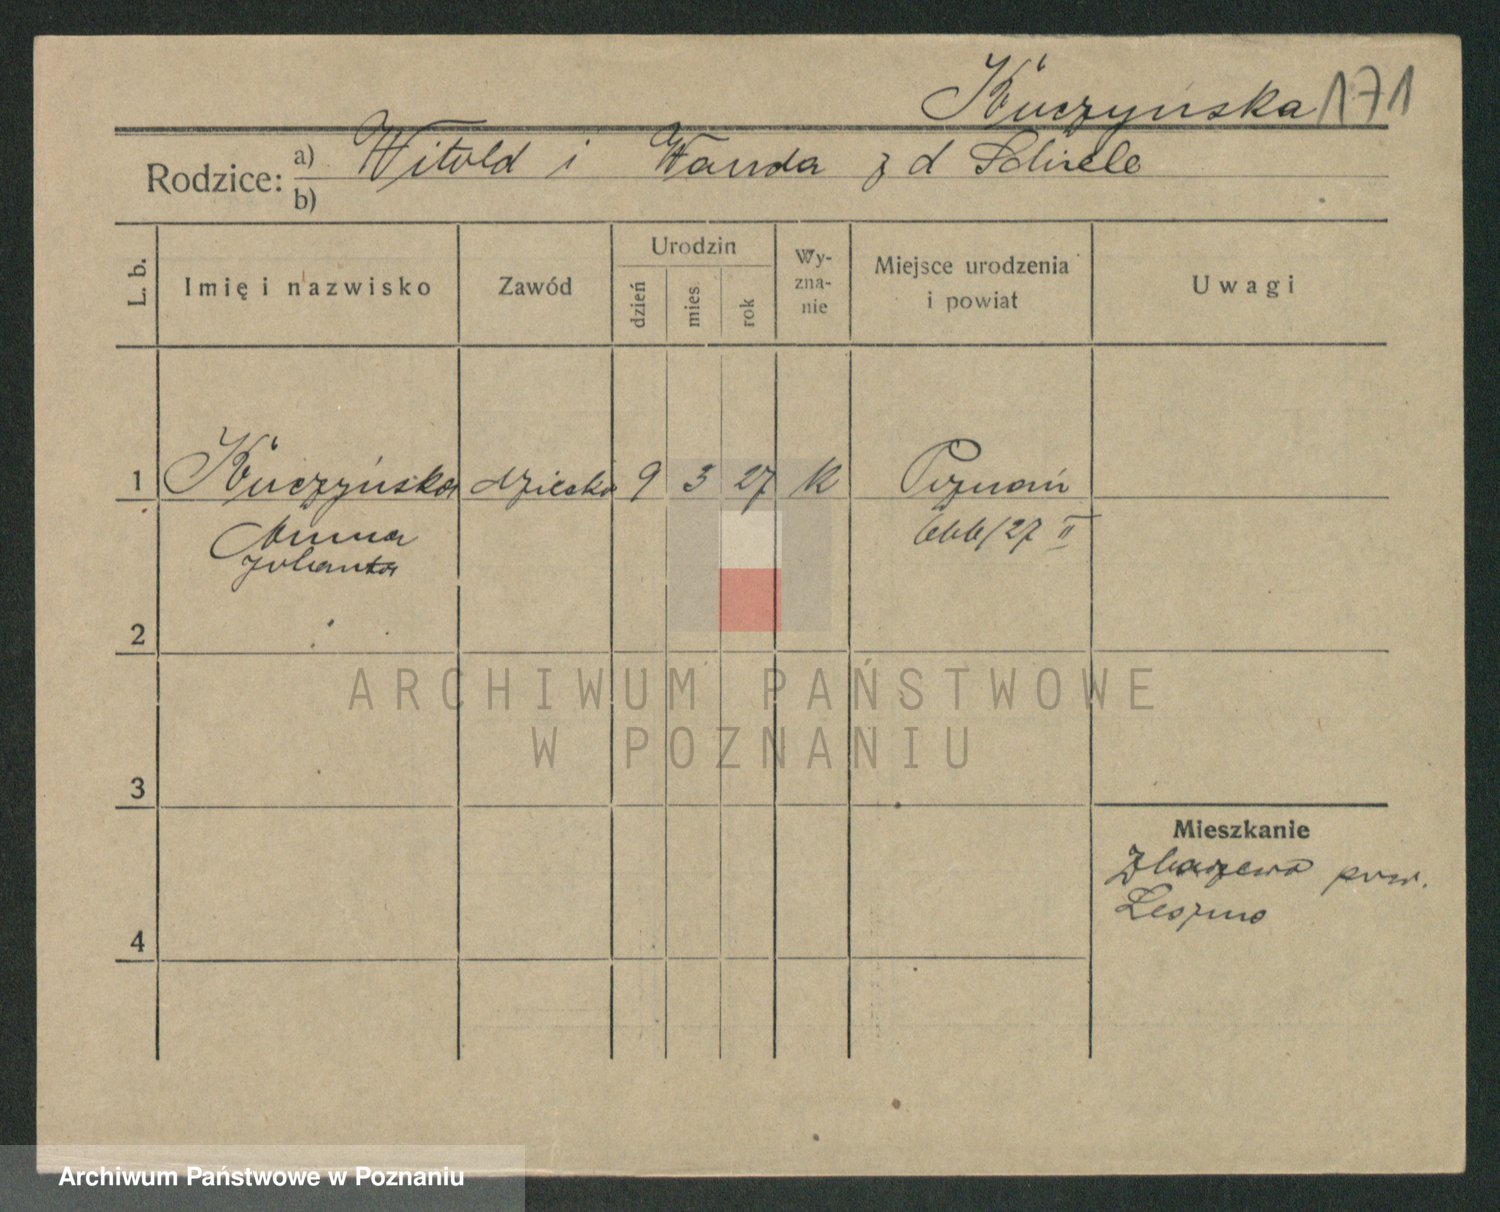 Kuczyńska 171
Rodzice: a) Witold i Wanda z d Schiele
b)
L. b.
Imię i nazwisko
Zawód
Urodzin
dzień
mies
rok
Wy-
zna-
nie
Miejsce urodzenia
i powiat
Uwagi
1 Kuczyńska dziecko 9 3 27 k Poznań
Anna
Jolanta
666/27 II
2
ARCHIWUM PAŃSTWOWE
W POZNANIU
3
Mieszkanie
Zbarzewo pow.
Leszno
4
Archiwum Państwowe w Poznaniu